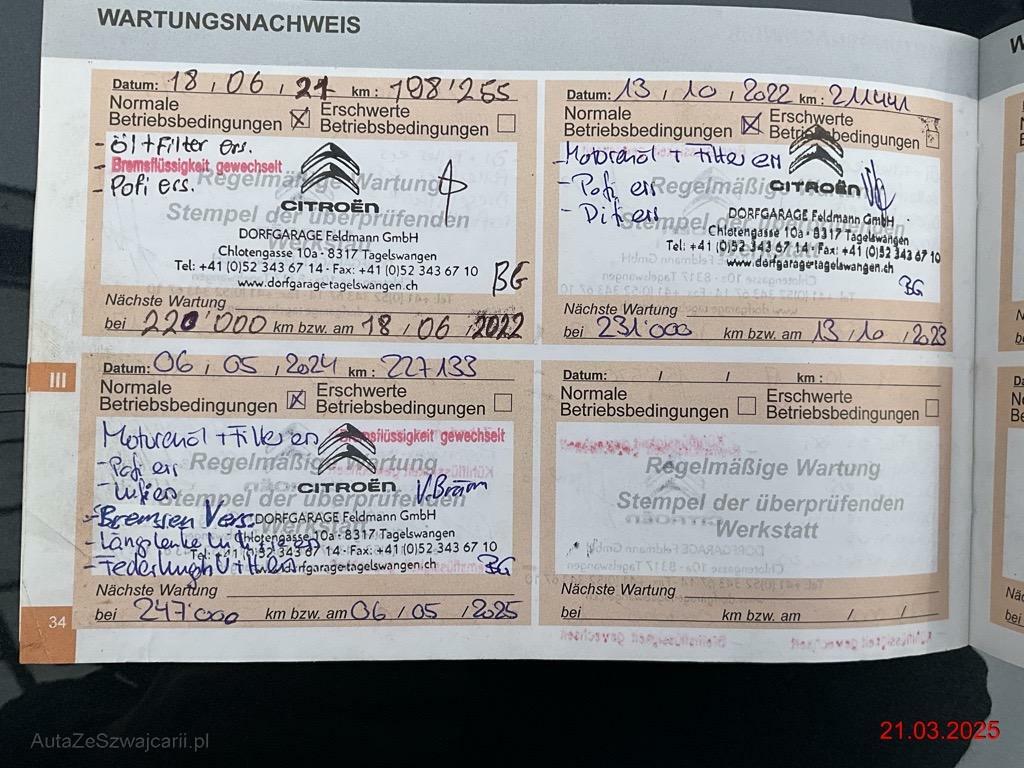 WARTUNGSNACHWEIS
Datum: 18 / 06 / 21 km : 198'255
Normale Betriebsbedingungen ☒ Erschwerte Betriebsbedingungen ☐
- Öl + Filter ers.
- Bremsflüssigkeit gewechselt
- Pofi ers.
Regelmäßige Wartung
Stempel der überprüfenden
Werkstatt
CITROËN
DORFGARAGE Feldmann GmbH
Chlotengasse 10a · 8317 Tagelswangen
Tel: +41 (0)52 343 67 14 · Fax: +41 (0)52 343 67 10
www.dorfgarage-tagelswangen.ch
BG
Nächste Wartung
bei 220'000 km bzw. am 18 / 06 / 2022
Datum: 13 / 10 / 2022 km : 211441
Normale Betriebsbedingungen ☒ Erschwerte Betriebsbedingungen ☐
- Motorenöl + Filter ers
- Pofi ers
Regelmäßige Wartung
Stempel der überprüfenden
Werkstatt
CITROËN
DORFGARAGE Feldmann GmbH
Chlotengasse 10a · 8317 Tagelswangen
Tel: +41 (0)52 343 67 14 · Fax: +41 (0)52 343 67 10
www.dorfgarage-tagelswangen.ch
BG
Nächste Wartung
bei 231'000 km bzw. am 13 / 10 / 2023
III
Datum: 06 / 05 / 2024 km : 227133
Normale Betriebsbedingungen ☒ Erschwerte Betriebsbedingungen ☐
Motorenöl + Filter ers
Bremsflüssigkeit gewechselt
- Pofi ers
Regelmäßige Wartung
Stempel der überprüfenden
CITROËN
- Bremsen V ers.
DORFGARAGE Feldmann GmbH
Chlotengasse 10a · 8317 Tagelswangen
Tel: +41 (0)52 343 67 14 · Fax: +41 (0)52 343 67 10
www.dorfgarage-tagelswangen.ch
BG
Nächste Wartung
bei 247'000 km bzw. am 06 / 05 / 2025
Datum: / / km :
Normale Betriebsbedingungen ☐ Erschwerte Betriebsbedingungen ☐
Regelmäßige Wartung
Stempel der überprüfenden
Werkstatt
Nächste Wartung
bei km bzw. am / /
34
AutaZeSzwajcarii.pl
21.03.2025